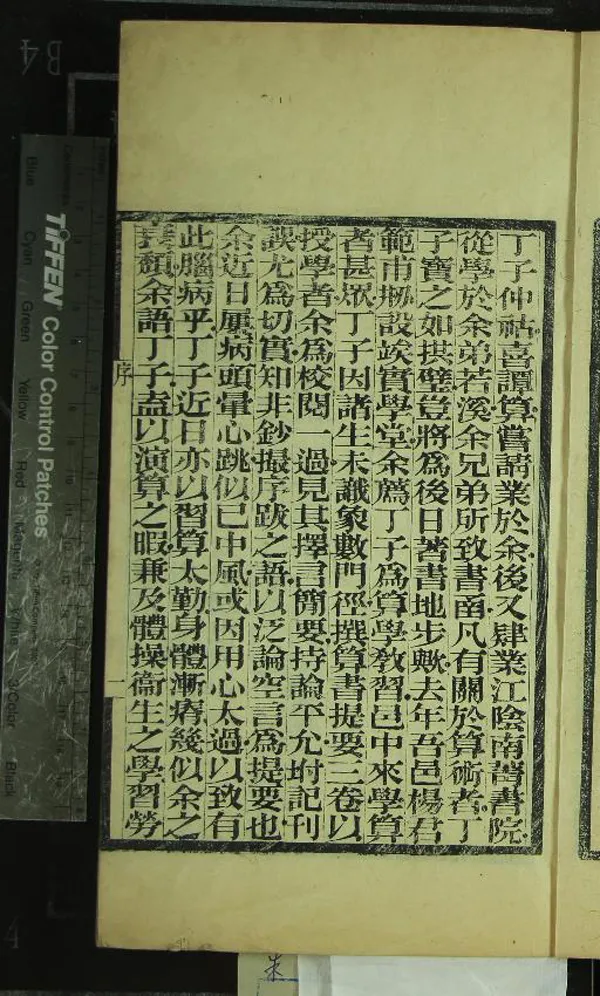 丁子仲祜喜譚算嘗請業於余後又肄業江陰南菁書院
從學於余弟若溪余兄弟所致書函凡有關於算術者丁
子寶之如拱璧豈將為後日著書地步歟去年吾邑楊君
範甫剏設竢實學堂余薦丁子為算學教習邑中來學算
者甚眾丁子因諸生未識象數門徑撰算書提要三卷以
授學者余為校閱一過見其擇言簡要持論平允坿記刊
誤尤為切實知非鈔撮序跋之語以泛論空言為提要也
余近日屢病頭暈心跳似已中風或因用心太過以致有
此腦病乎丁子近日亦以習算太勤身體漸瘠幾似余之
衰頹余語丁子盍以演算之暇兼及體操衞生之學習勞
序
一
TIFFEN Color Control Patches
Blue
Cyan
Green
Yellow
Red
Magenta
White
3/Color
Black
B4
4